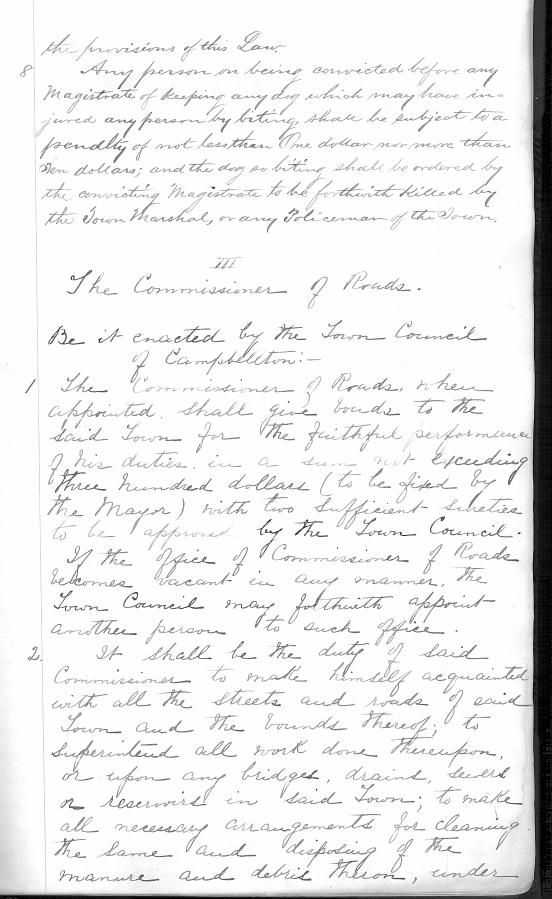 the provisions of this Law.
8 Any person on being convicted before any
Magistrate of keeping any dog which may have in-
jured any person by biting, shall be subject to a
penalty of not less than One dollar nor more than
Ten dollars; and the dog so biting shall be ordered by
the convicting Magistrate to be forthwith killed by
the Town Marshal, or any Policeman of the Town.
III
The Commissioner of Roads.
Be it enacted by the Town Council
of Campbellton:-
1 The Commissioner of Roads, when
appointed, shall give bonds to the
said Town for the faithful performance
of his duties, in a sum not exceeding
three hundred dollars (to be fixed by
the Mayor) with two sufficient sureties
to be approved by the Town Council.
If the office of Commissioner of Roads
becomes vacant in any manner, the
Town Council may forthwith appoint
another person to such office.
2. It shall be the duty of said
Commissioner to make himself acquainted
with all the streets and roads of said
Town and the bounds thereof; to
superintend all work done thereupon,
or upon any bridges, drains, sewers
or reservoirs in said Town; to make
all necessary arrangements for cleaning
the same and disposing of the
manure and debris theron, under